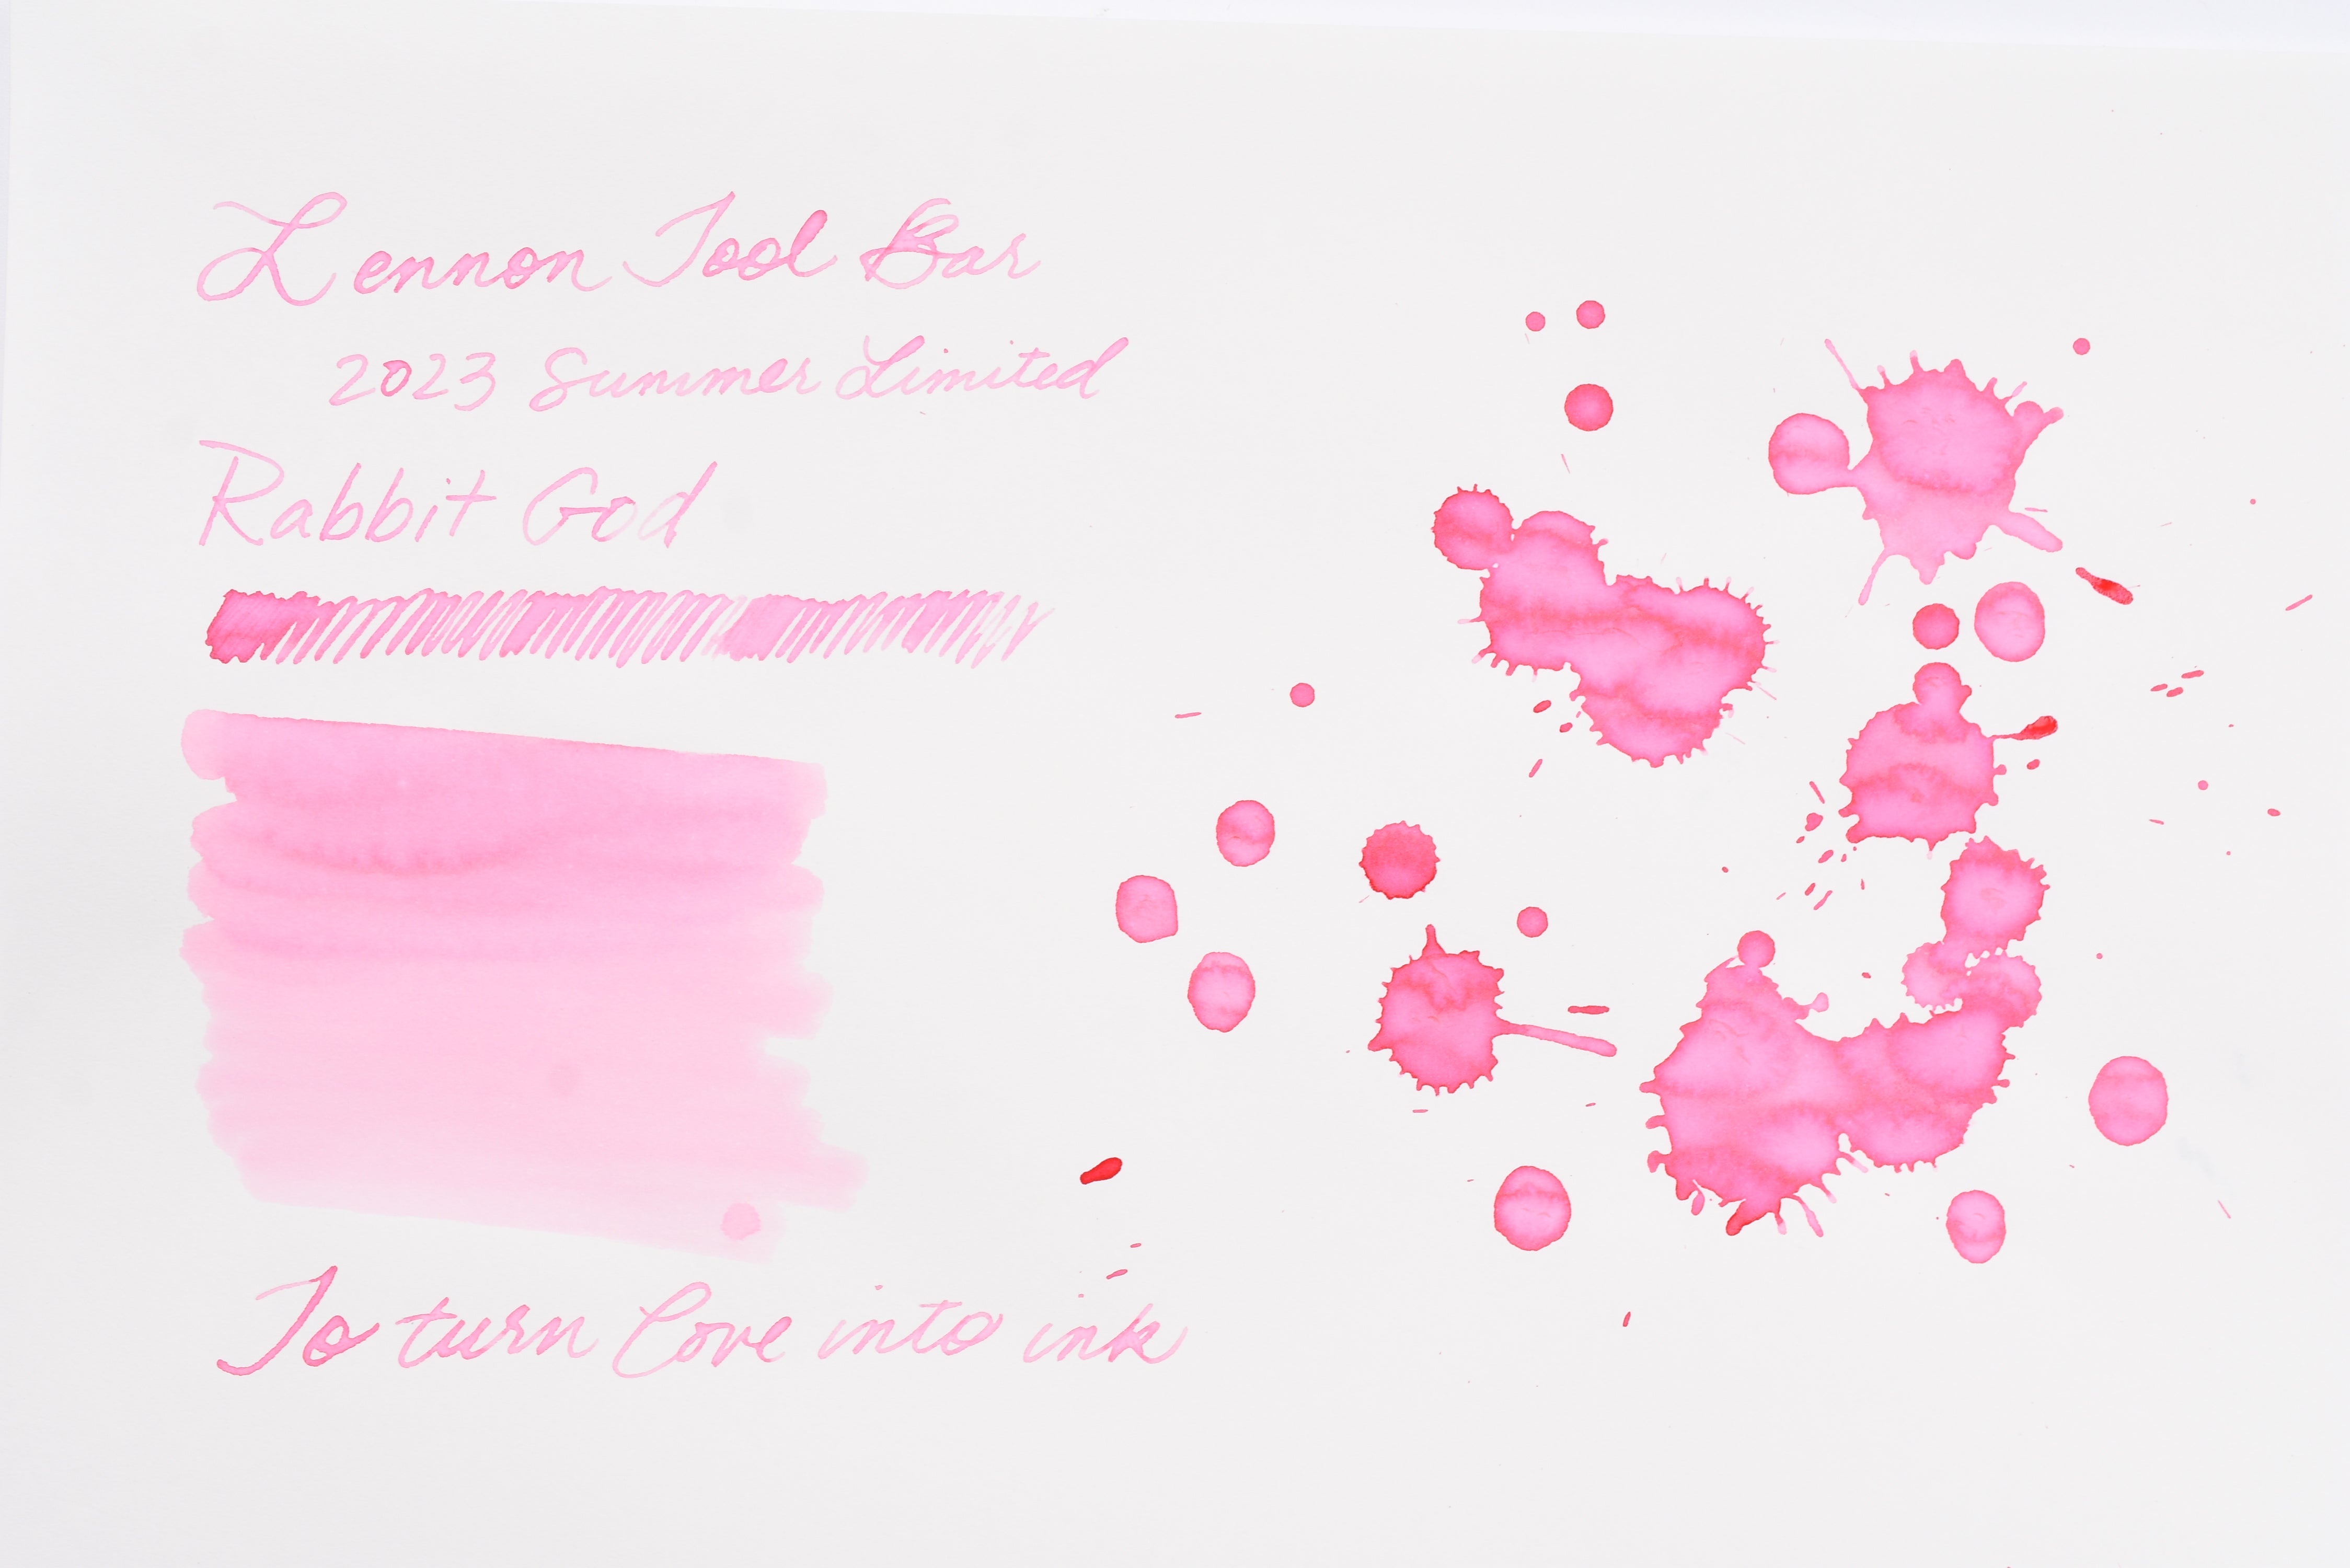 Lennon Tool Bar
2023 Summer Limited
Rabbit God
To turn love into ink